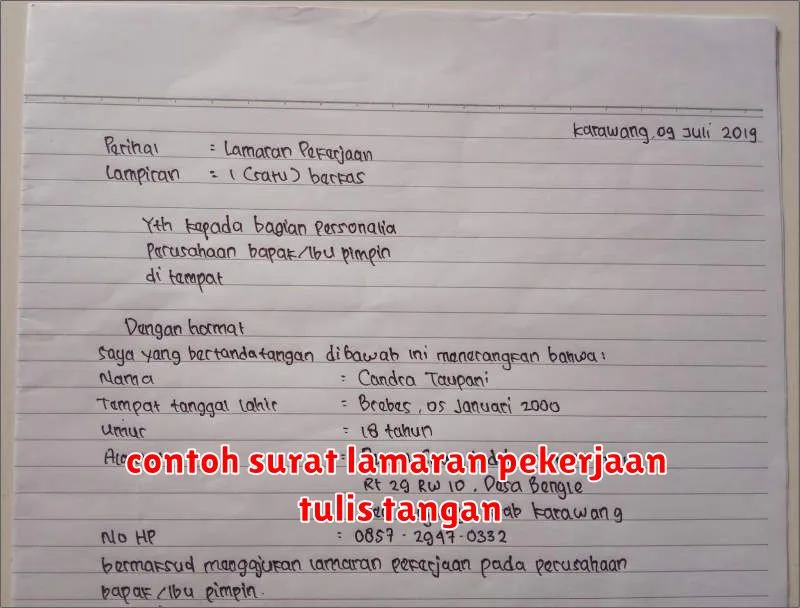 Karawang, 09 Juli 2019
Perihal : Lamaran Pekerjaan
Lampiran : 1 (satu) berkas
Yth kepada bagian Personalia
Perusahaan bapak/Ibu pimpin
di tempat
Dengan hormat
Saya yang bertandatangan dibawah ini menerangkan bahwa:
Nama : Candra Taupani
Tempat tanggal lahir : Brebes, 05 Januari 2000
Umur : 18 tahun
contoh surat lamaran pekerjaan
Rt 29 RW 10. Desa Bengle
tulis tangan
Karawang
No HP : 0857-2947-0332
bermaksud mengajukan lamaran pekerjaan pada perusahaan
bapak/Ibu pimpin.